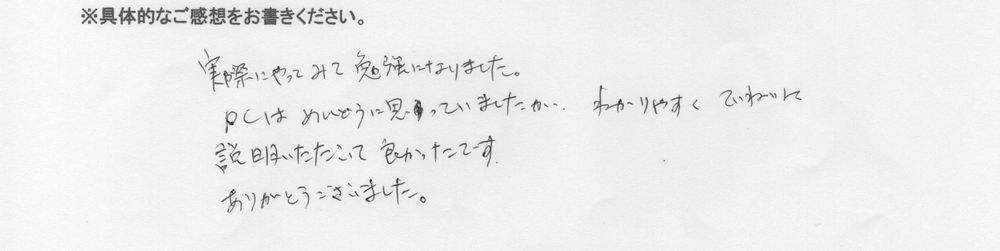 ※具体的なご感想をお書きください。
実際にやってみて勉強になりました。
PCはめんどうに思っていましたが、わかりやすくていねいに
説明いただいて良かったです。
ありがとうございました。